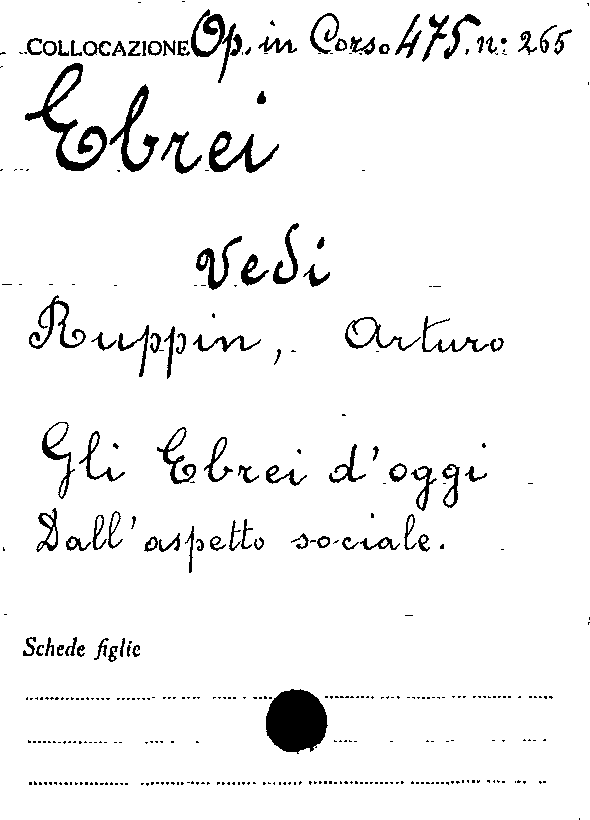 COLLOCAZIONE Op. in Corso 475. n: 265
Ebrei
Vedi
Ruppin, Arturo
Gli Ebrei d'oggi
Dall'aspetto sociale.
Schede figlie